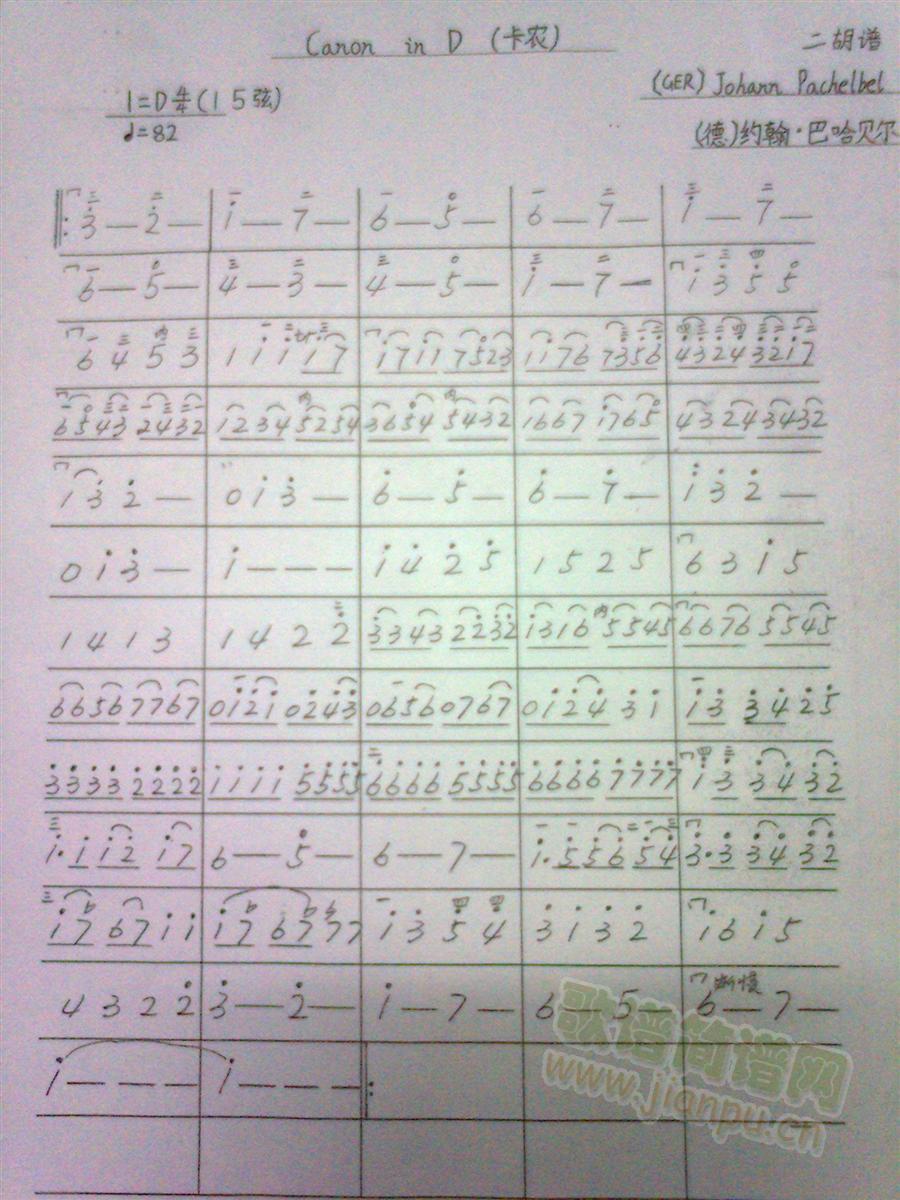 Canon in D (卡农)
二胡谱
1=D 4/4 (1 5弦)
(GER) Johann Pachelbel
♩=82
(德)约翰·巴哈贝尔
3 — 2 — | 1 — 7 — | 6 — 5 — | 6 — 7 — | 1 — 7 —
6 — 5 — | 4 — 3 — | 4 — 5 — | 1 — 7 — | 1 3 5 5
6 4 5 3 | 1 1 1 1 7 | 1 7 1 1 7 5 2 3 | 1 1 7 6 7 3 5 6 | 4 3 2 4 3 2 1 7
6 5 4 3 2 4 3 2 | 1 2 3 4 5 2 5 4 | 3 6 5 4 5 4 3 2 | 1 6 6 7 1 7 6 5 | 4 3 2 4 3 4 3 2
1 3 2 — | 0 1 3 — | 6 — 5 — | 6 — 7 — | 1 3 2 —
0 1 3 — | 1 — — — | 1 4 2 5 | 1 5 2 5 | 6 3 1 5
1 4 1 3 | 1 4 2 2 | 3 3 4 3 2 2 3 2 | 1 3 1 6 5 5 4 5 | 6 6 7 6 5 5 4 5
6 6 5 6 7 7 6 7 | 0 1 2 1 0 2 4 3 | 0 6 5 6 0 7 6 7 | 0 1 2 4 3 1 | 1 3 3 4 2 5
3 3 3 3 2 2 2 2 | 1 1 1 1 5 5 5 5 | 6 6 6 6 5 5 5 5 | 6 6 6 6 7 7 7 7 | 1 3 3 4 3 2
1· 1 1 2 1 7 | 6 — 5 — | 6 — 7 — | 1· 5 5 6 5 4 | 3· 3 3 4 3 2
1 7 6 7 1 1 | 1 7 6 7 7 7 | 1 3 5 4 | 3 1 3 2 | 1 6 1 5
4 3 2 2 | 3 — 2 — | 1 — 7 — | 6 — 5 — | 渐慢 6 — 7 —
1 — — — | 1 — — —
歌谱简谱网
www.jianpu.cn